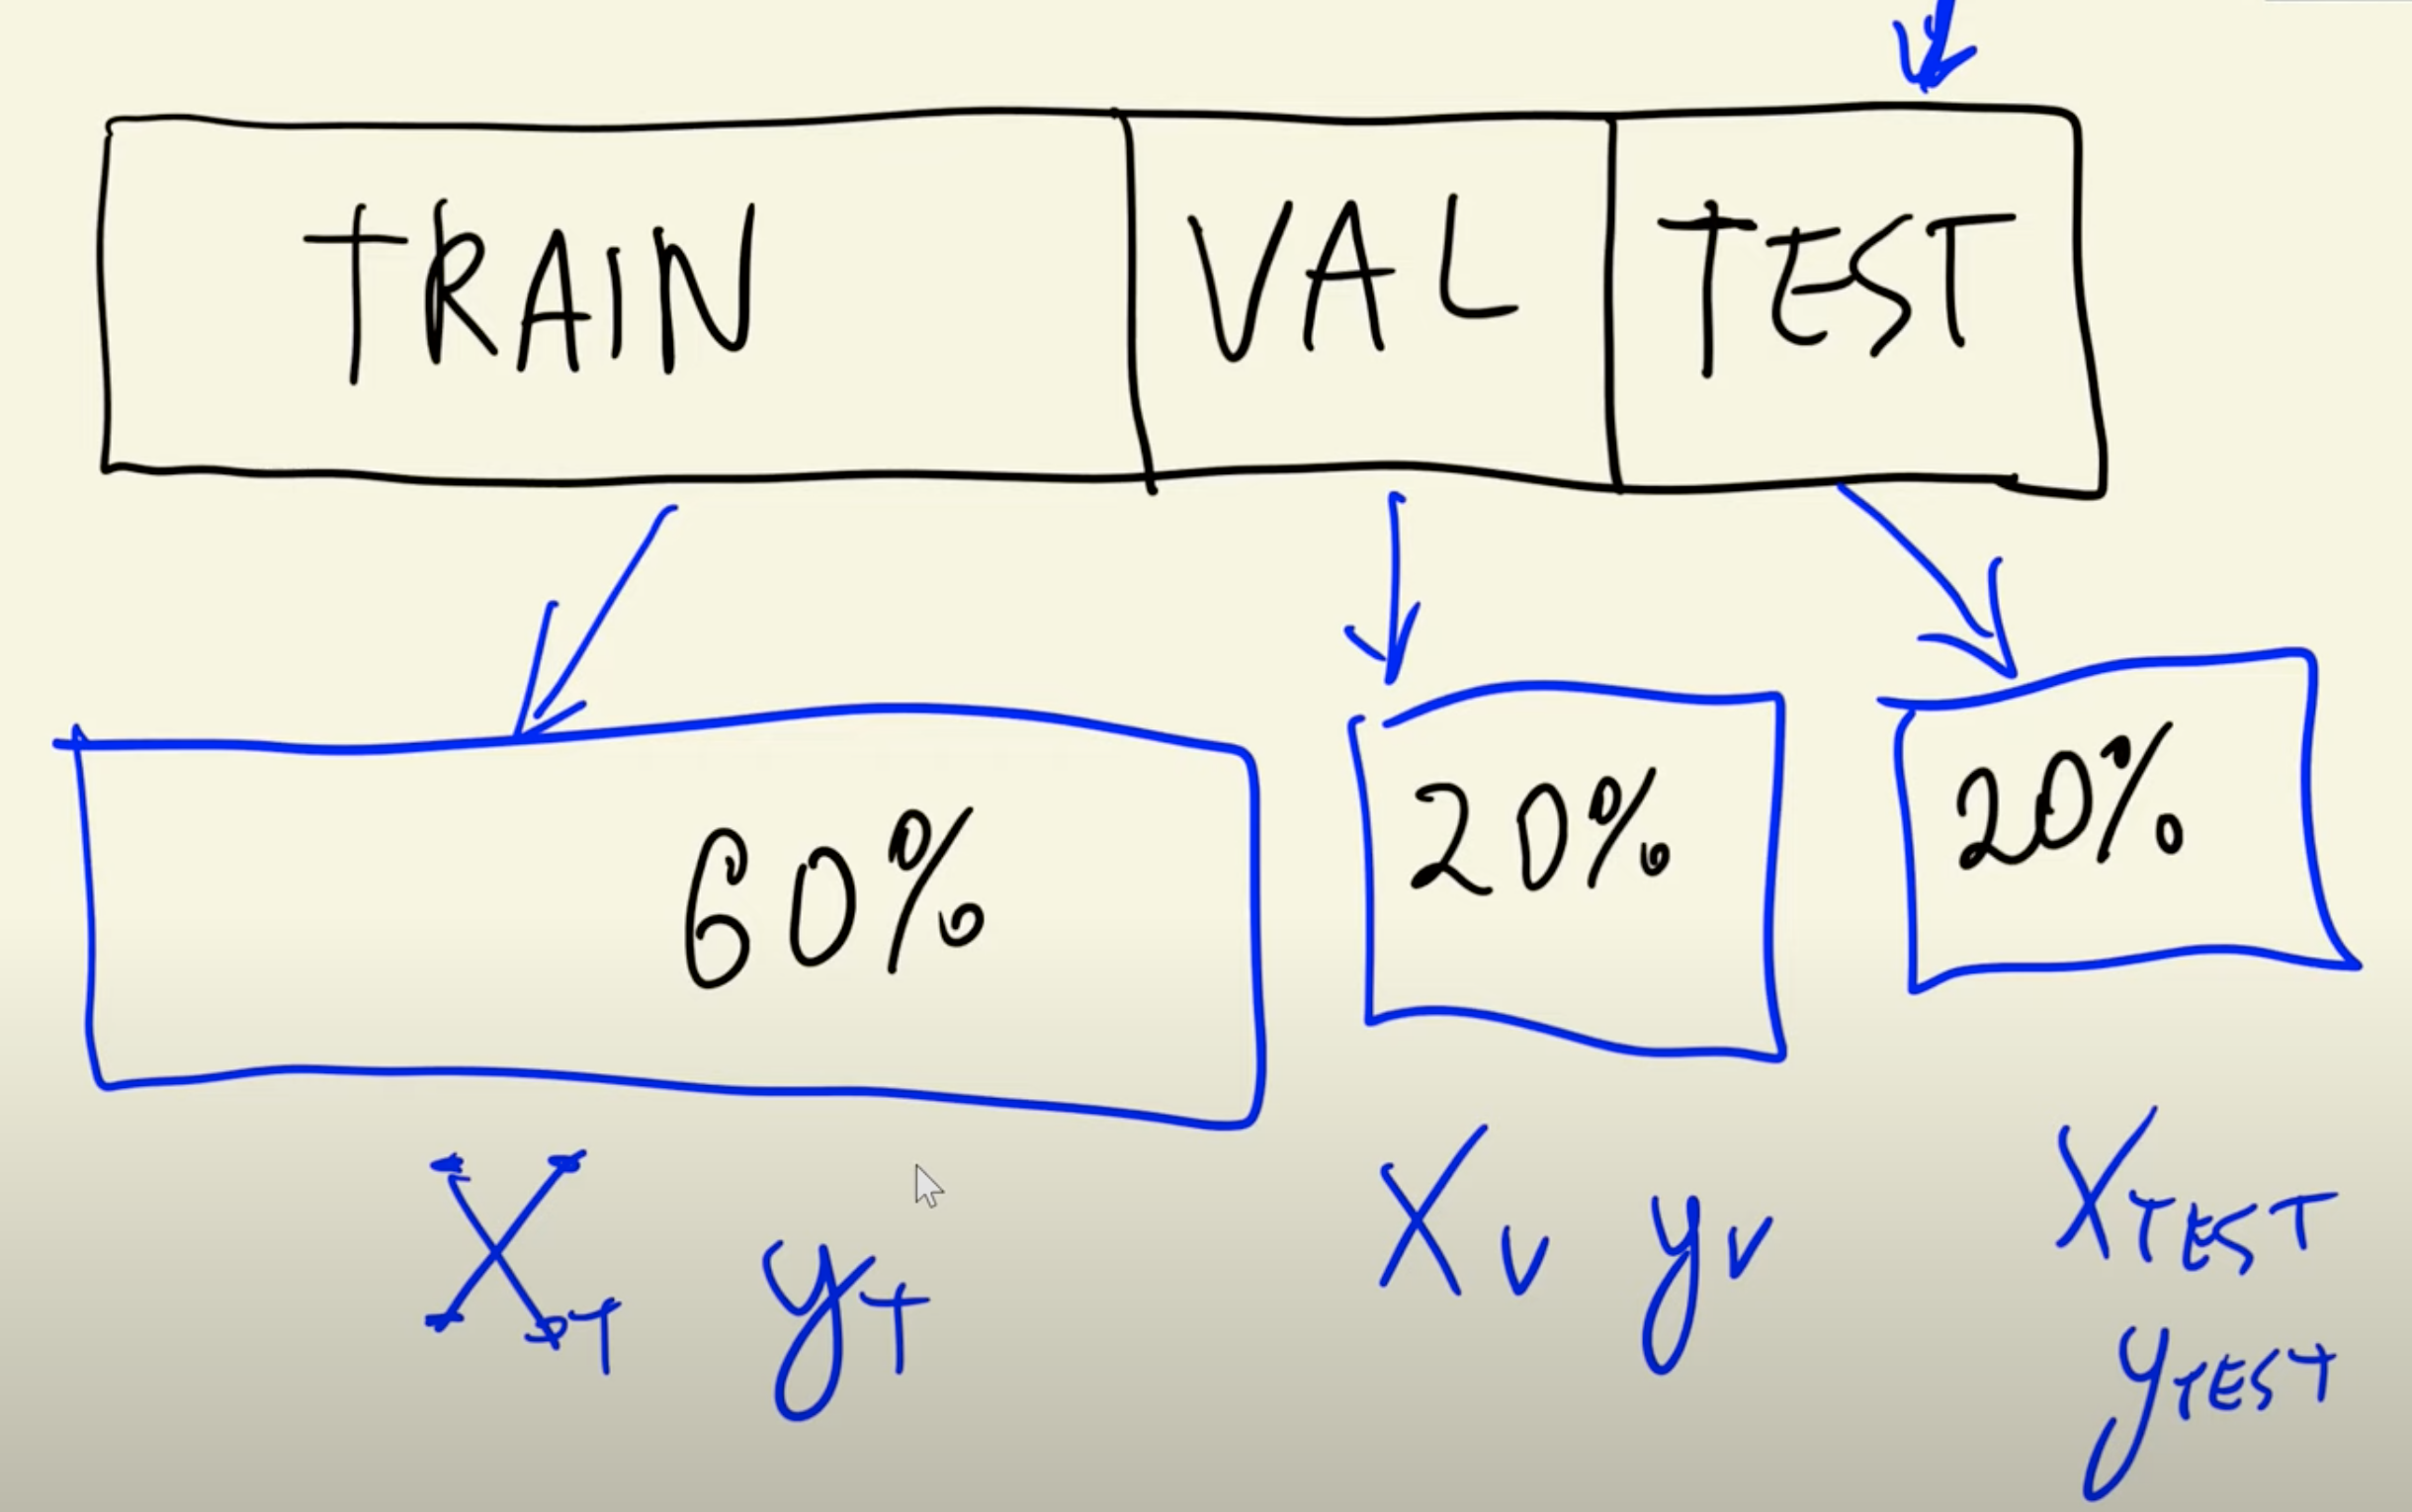 TRAIN VAL TEST
60% 20% 20%
X_T y_T X_V y_V X_TEST
y_TEST